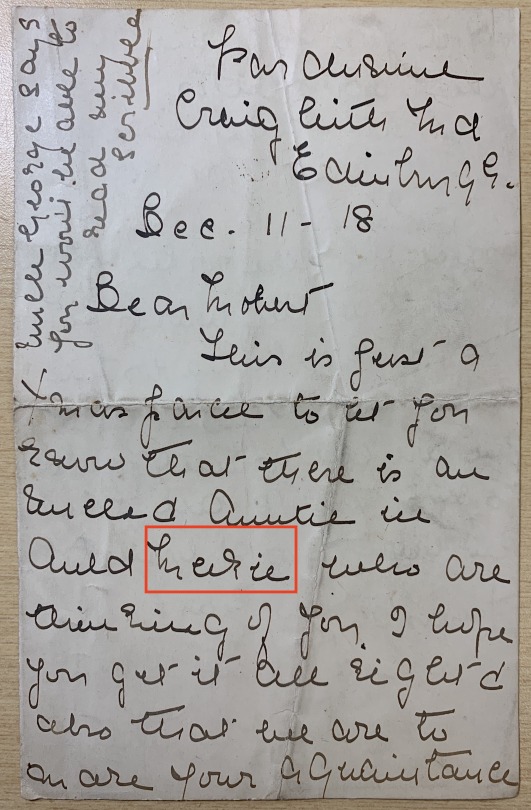 Craigleith Rd
Edinburgh.
Dec. 11 - 18
Dear Robert
This is just a
Xmas parcel to let you
know that there is an
Uncle & Auntie in
Auld Reekie who are
thinking of you I hope
you get it all right &
also that we are to
make your acquaintance
Uncle George says
you won't be able to
read my
scribble